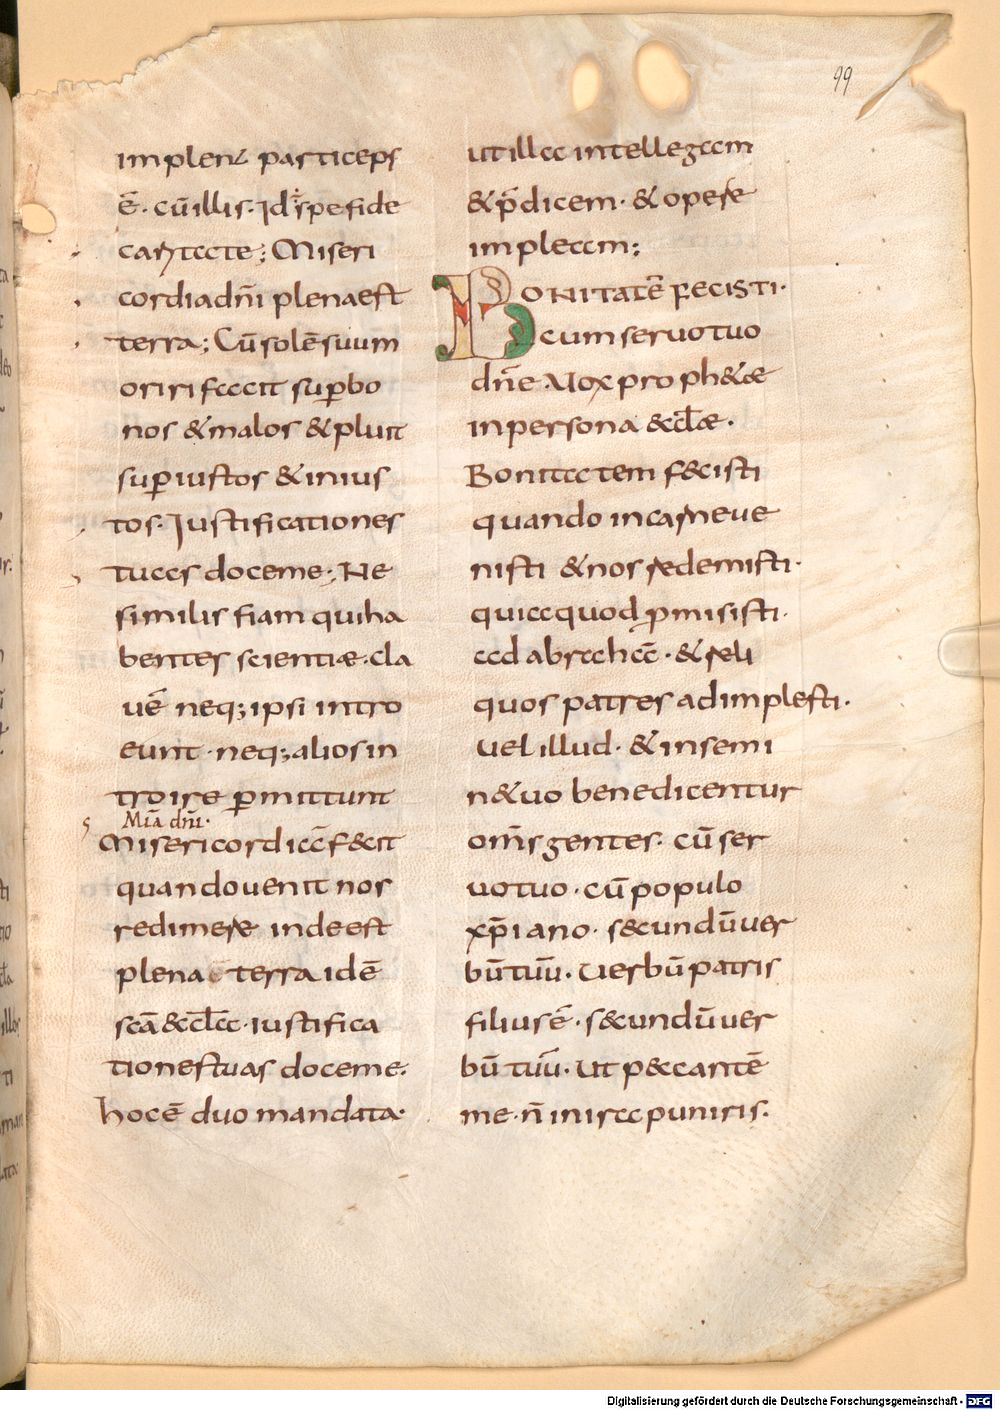 99
implent particeps
ē· cū illis· Id ē spe fide
caritate; Miseri
cordia dn̄i plena est
terra; Cū solē suum
oriri facit sup bo
nos & malos & pluit
sup iustos & inius
tos· Iustificationes
tuas doceme; Ne
similis fiam qui ha
bentes scientiæ· cla
uē neq; ipsi intro
eunt· neq; alios in
troire pmittunt
Mia dn̄i·
Misericordiā fecit
quando uenit nos
redimere inde est
plena terra id ē
scā æccl̄a· iustifica
tiones tuas doceme·
hoc ē duo mandata·
ut illa intellegam
& p̄dicem· & opere
impleam;
BONITATĒ FECISTI·
cum seruo tuo
dn̄e· Vox proph&æ
in persona æccl̄æ·
Bonitatem fecisti
quando in carne ue
nisti & nos redemisti·
quia quod pmisisti·
ad abrahā· & reli
quos patres adimplesti·
uel illud· & in semi
n& uo benedicentur
om̄s gentes· cū ser
uo tuo· cū populo
xp̄iano· secundū uer
bū tuū· Uerbū patris
filius ē· secundū uer
bū tuū· ut peccantē
me· n̄ in ira puniris·
Digitalisierung gefördert durch die Deutsche Forschungsgemeinschaft · DFG